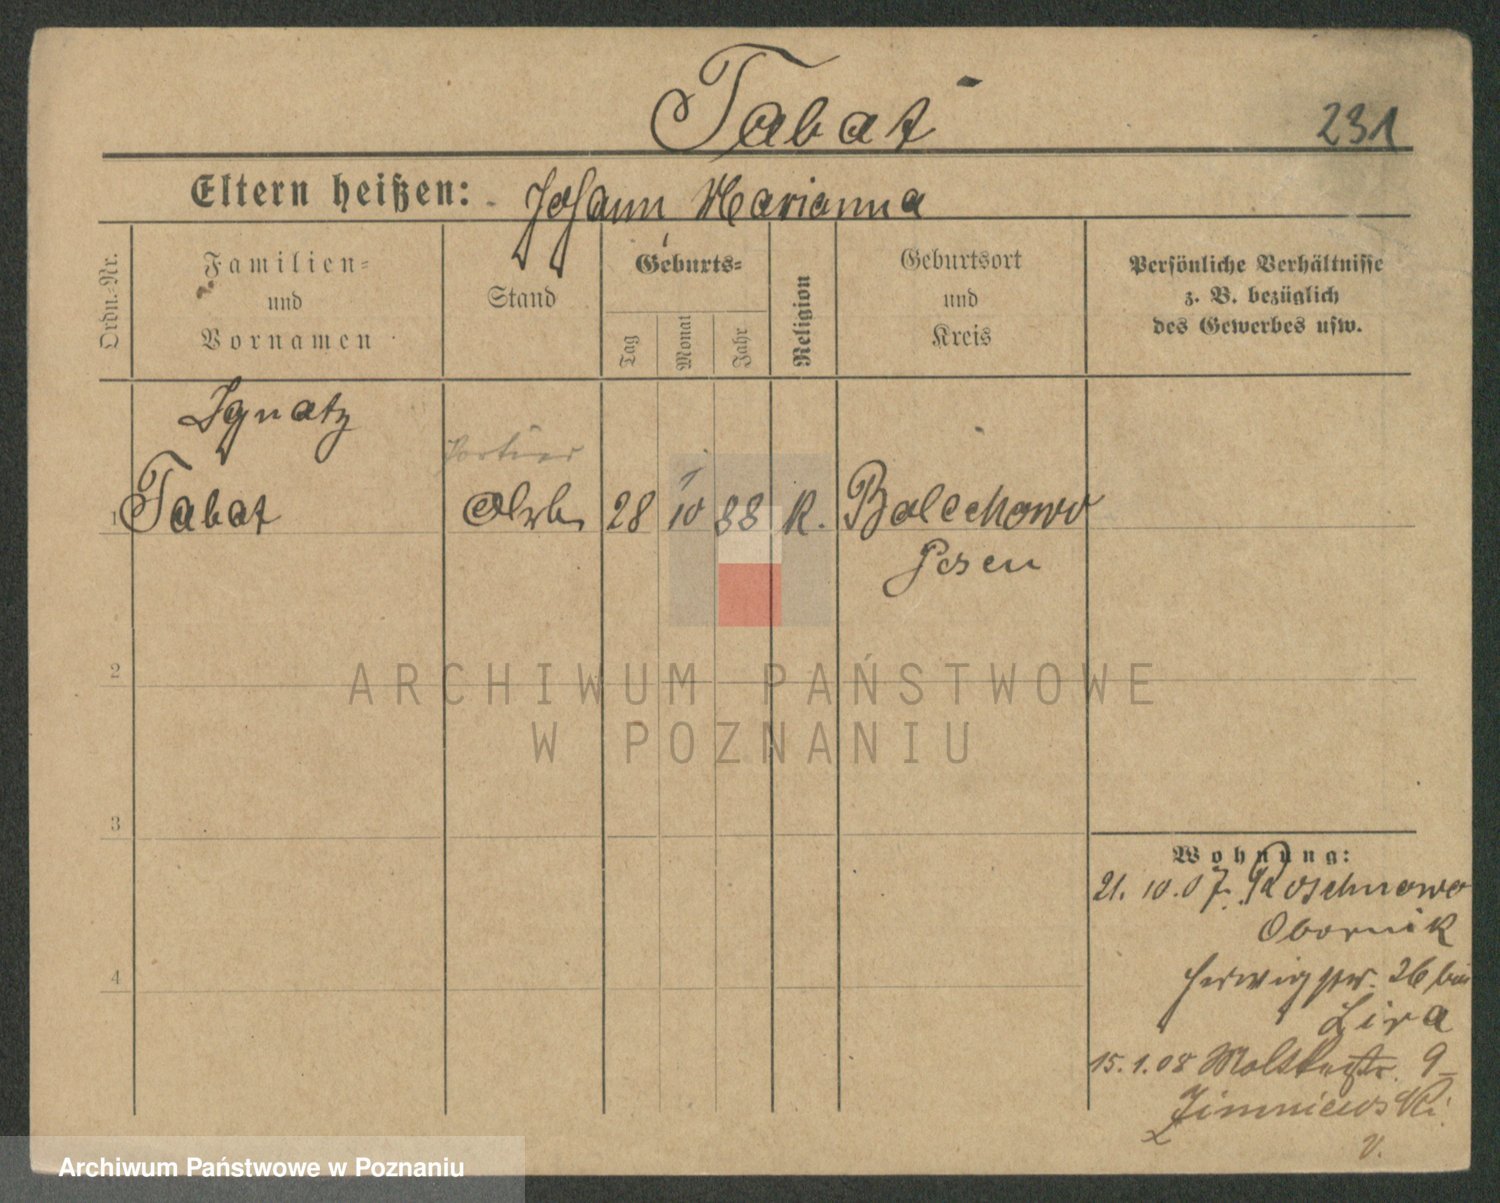 Tabat
231
Eltern heißen: Johann Marianna
Ordn.-Nr.
Familien-
und
Vornamen
Stand
Geburts-
Tag
Monat
Jahr
Religion
Geburtsort
und
Kreis
Persönliche Verhältnisse
z. B. bezüglich
des Gewerbes usw.
Ignatz
Portier
1 Tabat Arb. 28 10 88 K. Bolechowo
Posen
2
3
4
Wohnung:
21. 10. 07. Roschnowo
Obornik
26 bei
Lira
15. 1. 08 Moltkestr. 9
Zimniewski
v.
ARCHIWUM PAŃSTWOWE
W POZNANIU
Archiwum Państwowe w Poznaniu